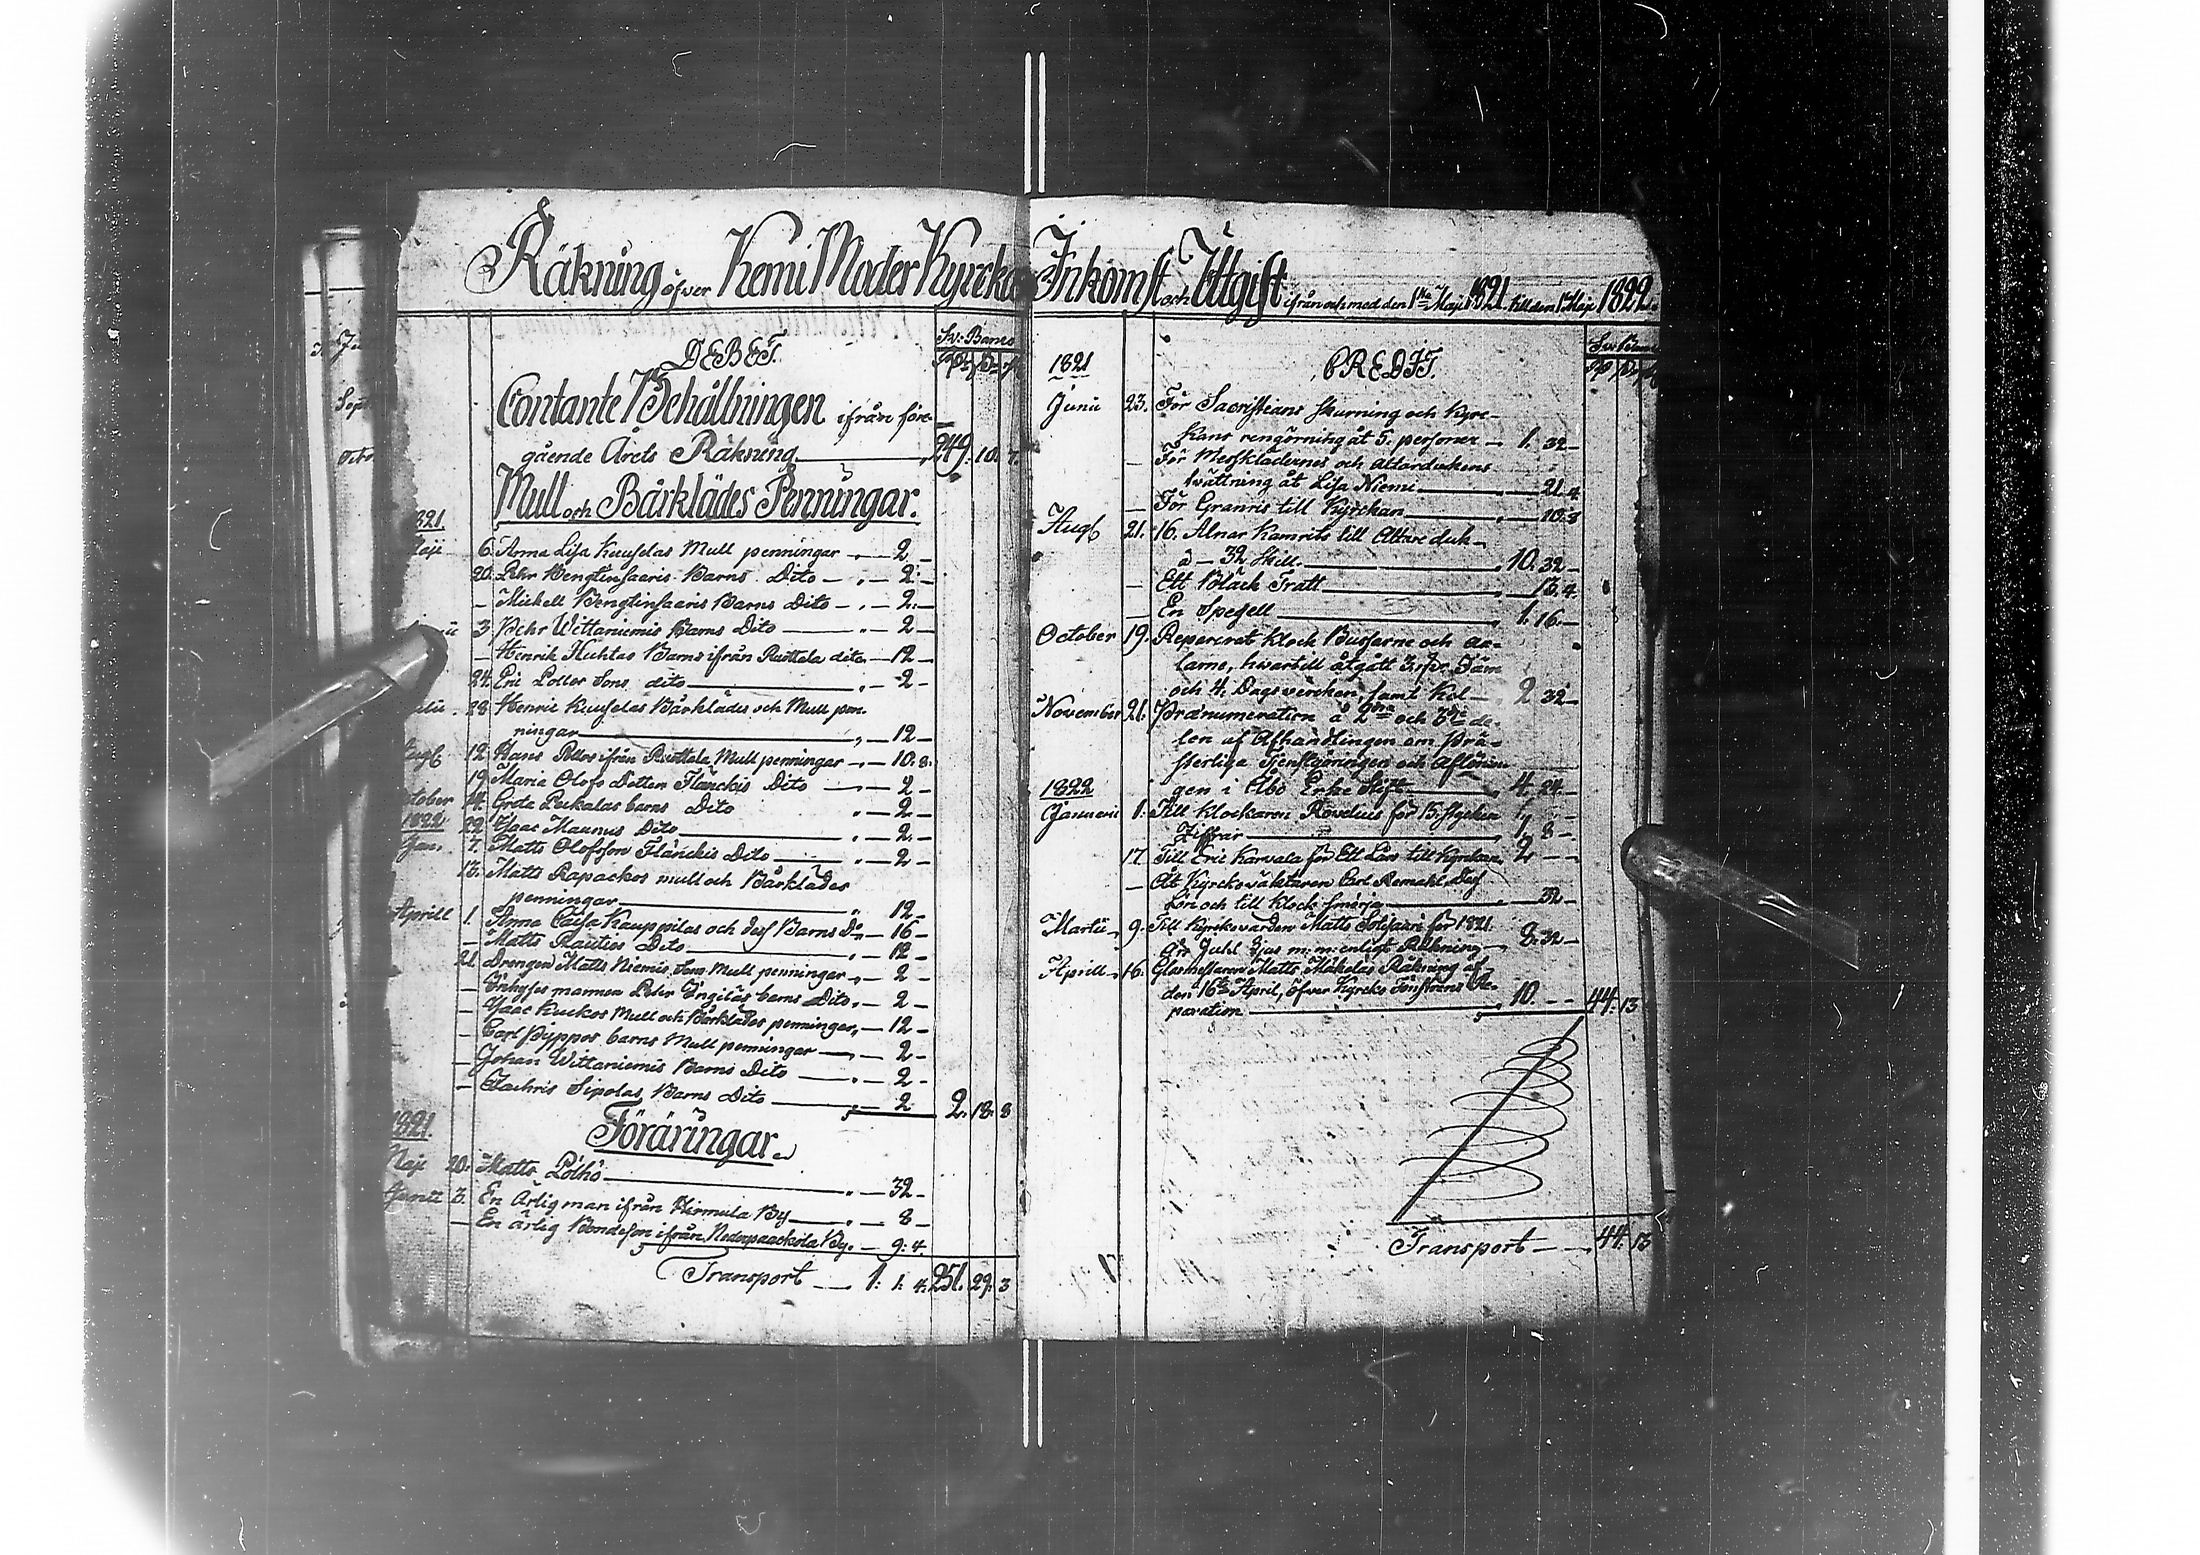 Räkning öfver Kemi Moder Kyrckas Inkomst och Utgift ifrån och med den 1sta Maji 1821 till den 1 Maji 1822.
DEBET.
Sv: Banco
Contante Behållningen ifrån före-
gående Årets Räkning 249. 10. 7.
Mull och Bårklädes Penningar.
1821
Maji 6. Anna Lisa Kuuselas Mull penningar 2
20. Pehr Bengtinsaaris Barns Dito 2
Michell Bengtinsaaris Barns Dito 2
3 Pehr Wittaniemis Barns Dito 2
Henrik Huhtas Barns ifrån Ruottala dito 12
24. Eric Loller Sons dito 2
28 Henric Kuuselas Bårklädes och Mull pen-
ningar 12
Aug 12 Hans Rllos ifrån Ruottala Mull penningar 10. 8.
19 Maria Olofs Dotter Flänckis Dito 2
October 14. Greta Peckalas barns Dito 2
1822 22 Isaac Maunus Dito 2
Jan. 7. Matts Olofsson Flänckis Dito 2
13. Matts Rapackos mull och Bårklädes
penningar 12
Aprill 1. Anna Caisa Kauppilas och des Barns Do 16
Matts Rautios Dito 12
21 Drengen Matts Niemis Sons Mull penningar 2
Inhyses mannen Pehr Engiläs barns Dito 2
Isaac Kuckos Mull och Bårklädes penningar 12
Carl Pyppos barns Mull penningar 2
Johan Wittaniemis Barns Dito 2
Zachris Sipolas Barns Dito 2 2. 18. 8
Föräringar.
1821.
Maji 20. Matts Pöïkö 32
Junii 3. En Ärlig man ifrån Hirmula By 8
En ärlig Bondeson ifrån Nederpaackola By. 9. 4.
Transport 1: 1. 4. 251. 29. 3
CREDIT.
1821
Junii 23. För Sacristians skurning och Kyrc-
kans rengörning åt 5. personer 1. 32
För Messklädernes och altardukens
tvättning åt Lisa Niemi 21. 4
För Granris till Kyrckan 10. 8
Aug 21. 16. Alnar Kamrits till Altare duk
à 32 Skill. 10. 32
Ett Bläck Tratt 13. 4.
En Spegell 1. 16
October 19. Reparerat klock Bussarne och ax-
larne, hwartill åtgått
och 4. Dagsvercken, samt Kol 2 32
November 21. Prænumeration å 2dra och 3dje de-
len af Afhandlingen om Prä-
sterliga Tjenstgöringen och Aflönin-
1822 gen i Åbo Erke Stift 4. 24
Januarii 1. Till klockaren Rovelius för 15. stycken
Ziffrar 1. 8
17. Till Eric Karvala för Ett Lås till Kyrckan 2
Åt Kyrckoväktaren Carl Remahl, Des
Lön och till klock smörja 32
Martii 9. Till Kyrckovärden Matts Sotisaari för 1821.
års Juhl Ljus m:m: enligt Räkning 2. 32
Aprill 16. Glasmestaren Matts Mäkeläs Räkning af
den 16de April, öfver Kyrcko fönstrens Re-
paration 10. 44. 13
Transport 44. 13